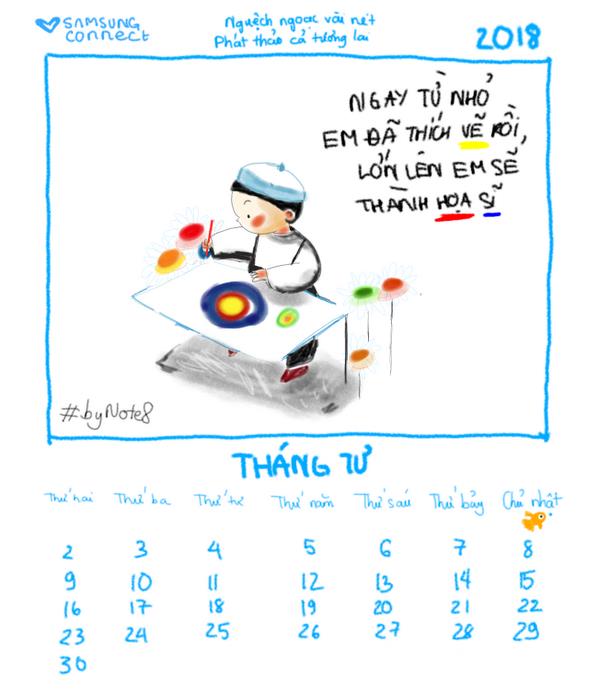 SAMSUNG
connect
Nguệch ngoạc vài nét
Phát thảo cả tương lai
2018
NGAY TỪ NHỎ
EM ĐÃ THÍCH VẼ RỒI,
LỚN LÊN EM SẼ
THÀNH HỌA SĨ
#byNote8
THÁNG TƯ
Thứ hai Thứ ba Thứ tư Thứ năm Thứ sáu Thứ bảy Chủ nhật
2 3 4 5 6 7 8
9 10 11 12 13 14 15
16 17 18 19 20 21 22
23 24 25 26 27 28 29
30